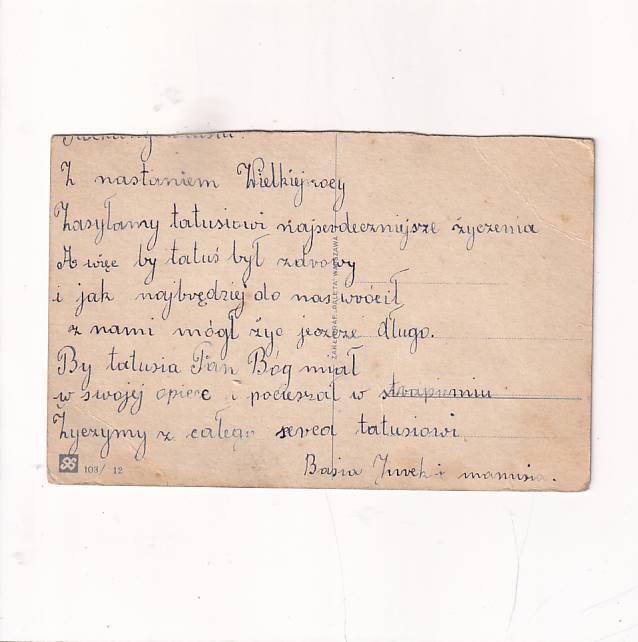 Z nastaniem Wielkiejnocy
Zasyłamy tatusiowi najserdeczniejsze życzenia
A więc by tatuś był zdrowy
i jak najprędziej do nas wrócił
z nami mógł żyć jeszcze długo.
By tatusia Pan Bóg miał
w swojej opiece i pocieszał w strapieniu
Życzymy z całego serca tatusiowi
Basia Jurek i mamusia.
103/ 12
ZAKŁ. GRAF. „PALETA" WARSZAWA